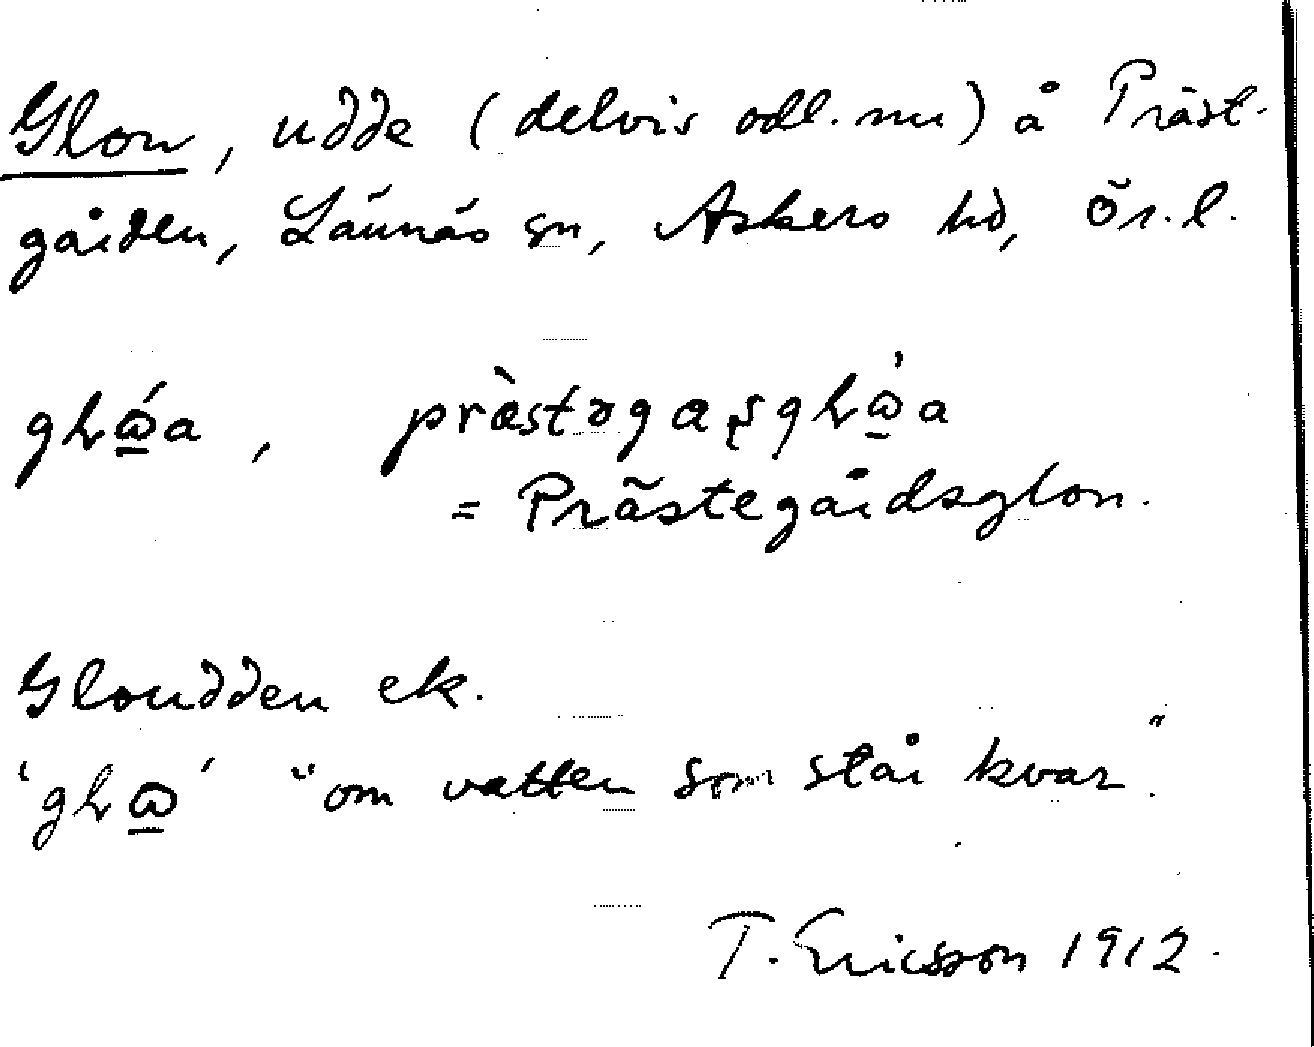 Glon, udde (delvis odl. nu) å Präst-
gården, Lännäs sn, Askers hd, Ör. l.
= Prästegårdsglon.
Gloudden ek.
"om vatten som står kvar".
T. Ericsson 1912.